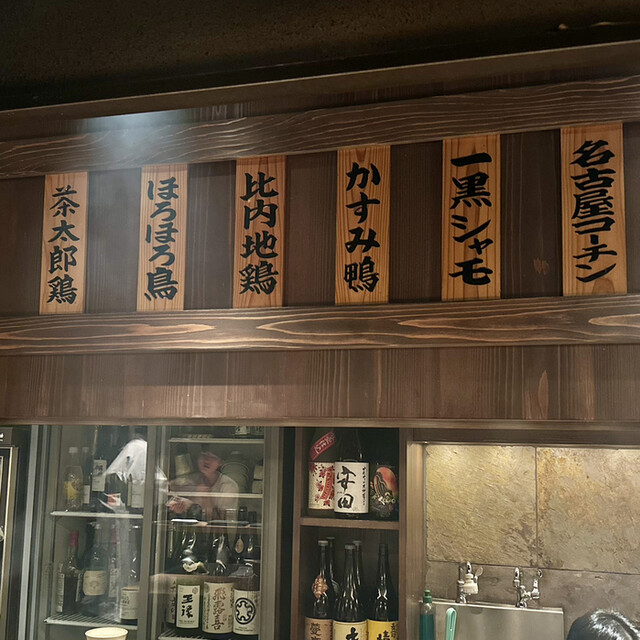 名古屋コーチン
一黒シャモ
かすみ鴨
比内地鶏
ほろほろ鳥
茶太郎鶏
安田